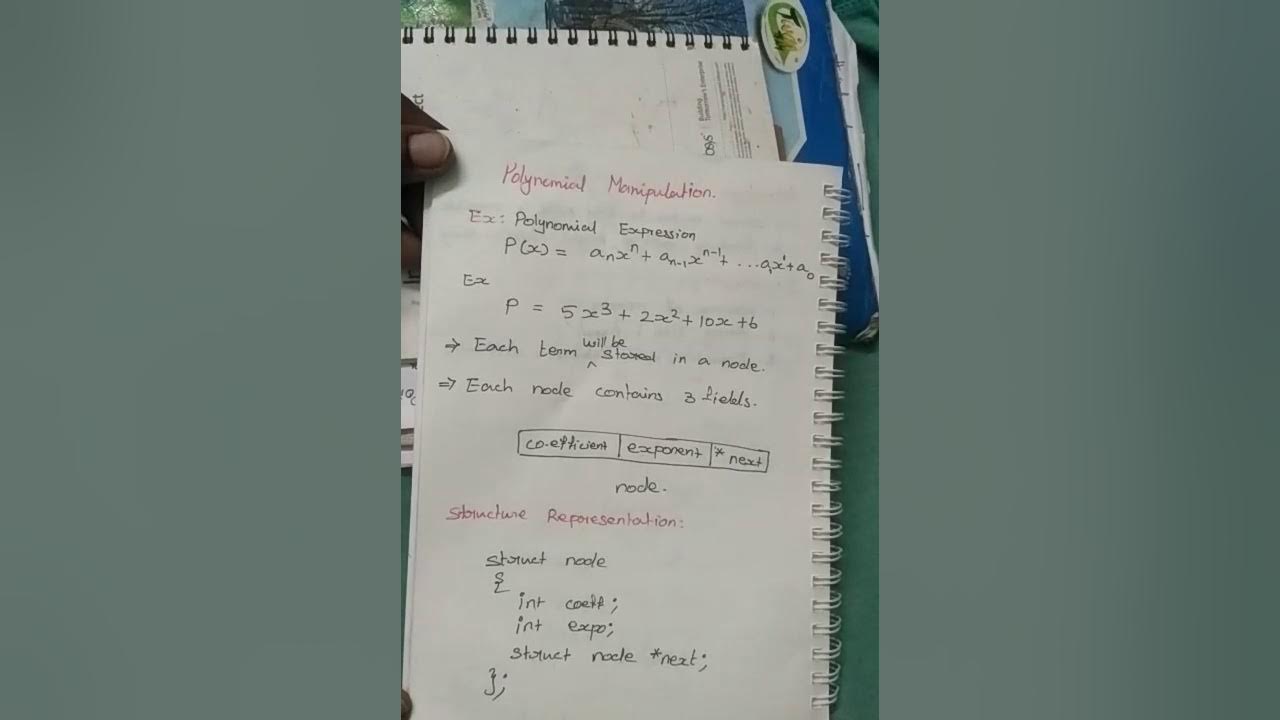 Building
Tomorrow's Enterprise
Polynomial Manipulation.
Ex: Polynomial Expression
P(x) = aₙxⁿ + aₙ₋₁xⁿ⁻¹ + ...a₁x¹ + a₀
Ex
P = 5x³ + 2x² + 10x + 6
⇒ Each term will be stored in a node.
⇒ Each node contains 3 fields.
co-efficient | exponent | * next
node.
Structure Representation:
struct node
{
int coeff;
int expo;
struct node *next;
};